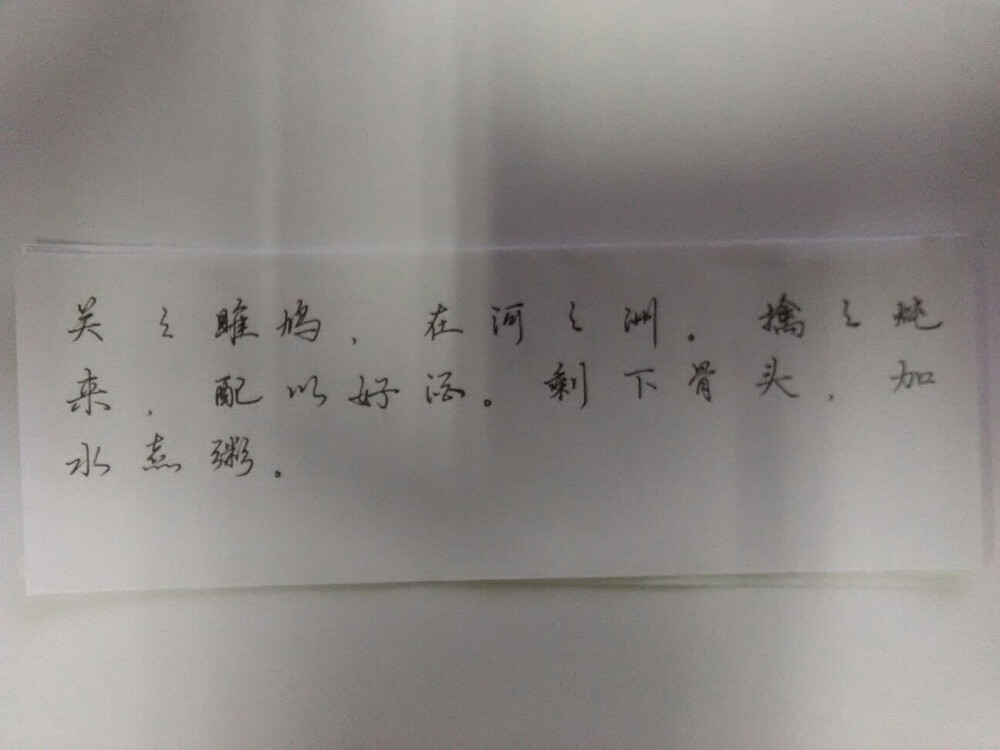 关之雎鸠，在河之洲。擒之炖
来，配以好酒。剩下骨头，加
水煮粥。